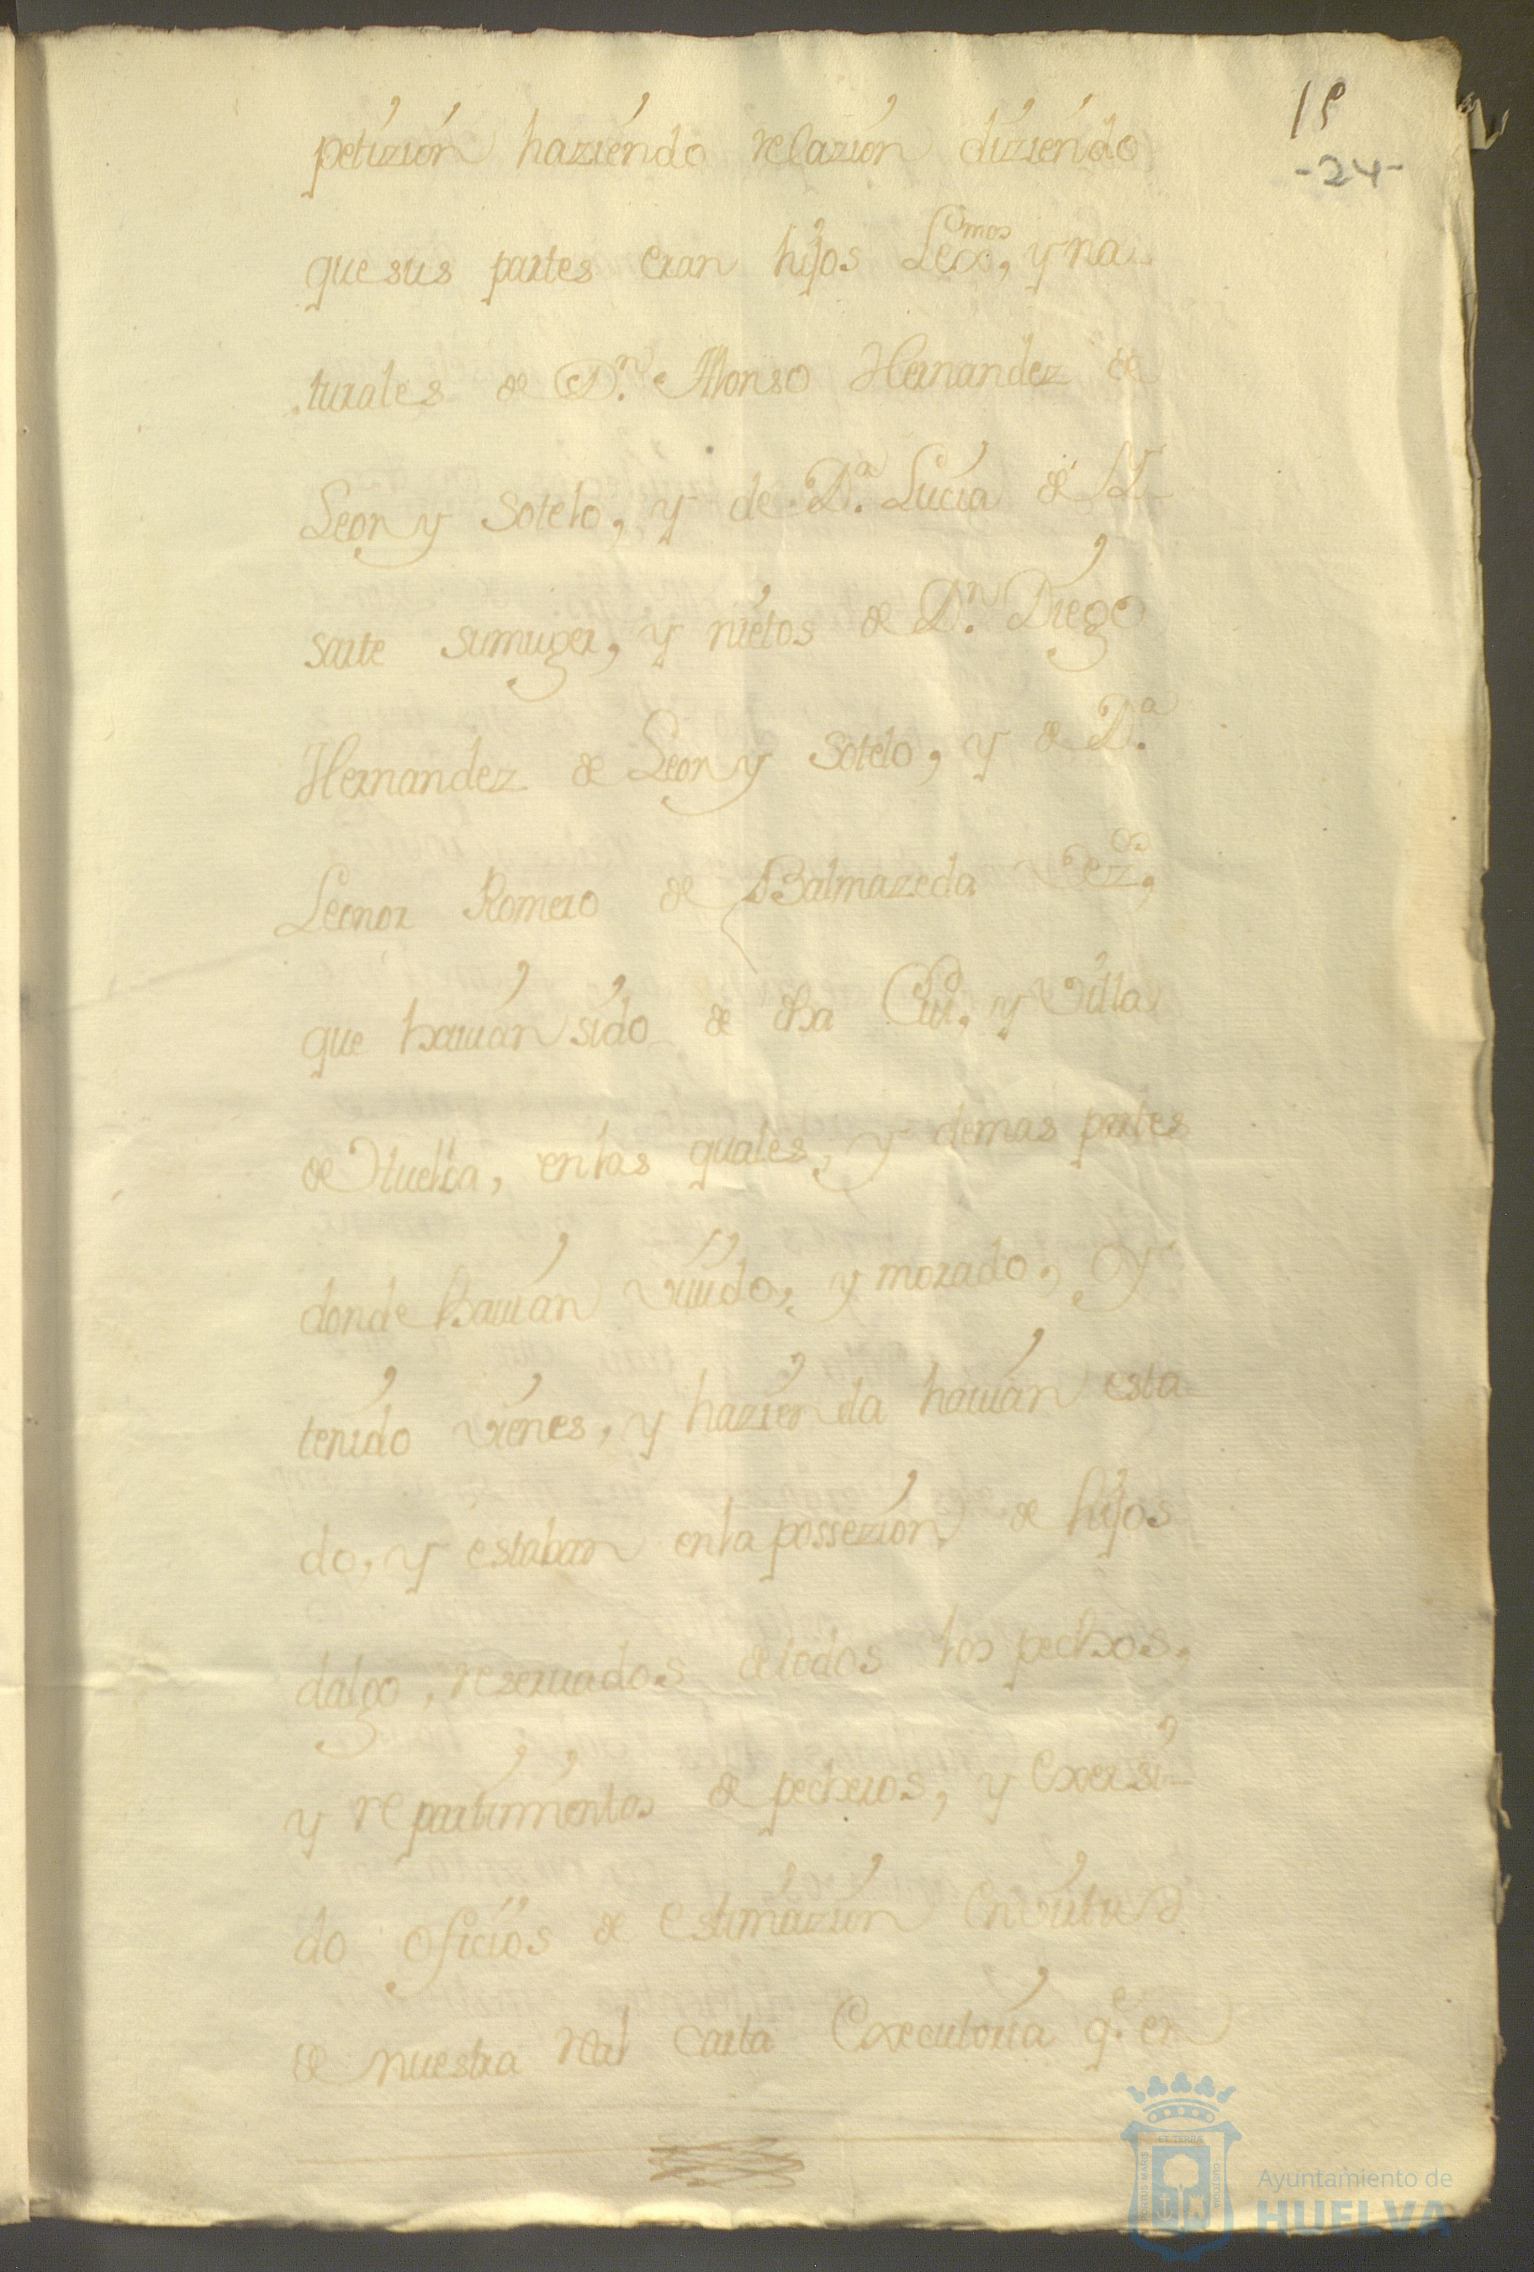 19
-24-
petizion haziendo relazion diziendo
que sus partes eran hijos Lexos^mos, y na-
turales de D.n Alonso Hernandez de
Leon y Sotelo, y de D.a Lucia de
sarte su muger, y nietos de D.n Diego
Hernandez de Leon y Sotelo, y de D.a
Leonor Romero de Balmazeda Vez,os
que hauian sido de dha Ciu.d, y Villa
de Huelba, en las quales, y demas partes
donde hauian viuido, y morado, y
tenido vienes, y hazienda hauian esta-
do, y estaban en la possezion de hijos
dalgo, reseruados de todos los pechos,
y repartimientos de pecheros, y exersi-
do oficios de estimazion en virtud
de nuestra real carta executoria q.e en
PORTUS MARIS ET TERRAE CUSTODIA
Ayuntamiento de
HUELVA